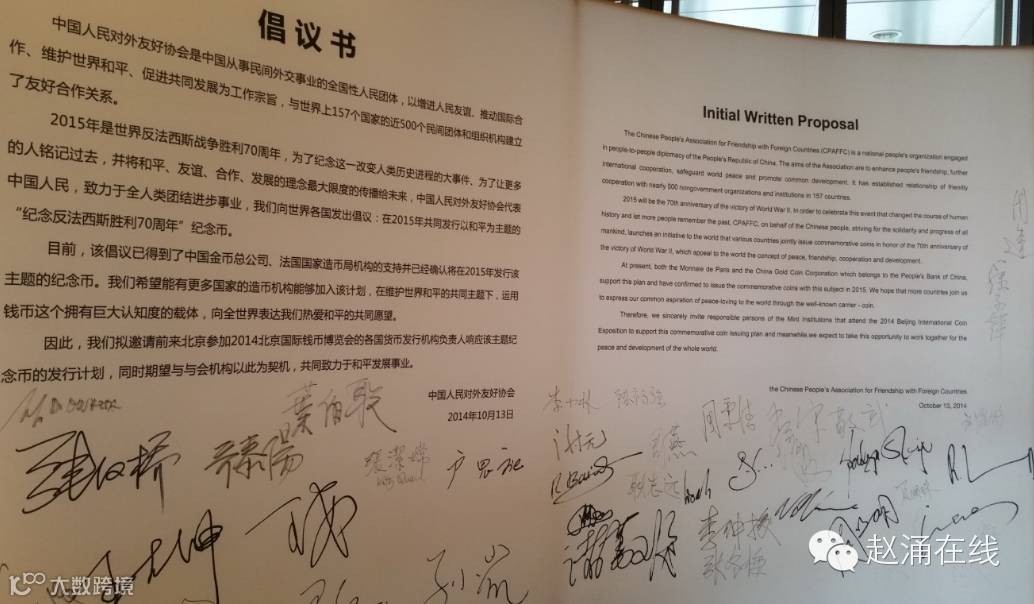 倡议书
中国人民对外友好协会是中国从事民间外交事业的全国性人民团体，以增进人民友谊、推动国际合
作、维护世界和平、促进共同发展为工作宗旨，与世界上157个国家的近500个民间团体和组织机构建立
了友好合作关系。
2015年是世界反法西斯战争胜利70周年，为了纪念这一改变人类历史进程的大事件、为了让更多
的人铭记过去，并将和平、友谊、合作、发展的理念最大限度的传播给未来，中国人民对外友好协会代表
中国人民，致力于全人类团结进步事业，我们向世界各国发出倡议：在2015年共同发行以和平为主题的
“纪念反法西斯胜利70周年”纪念币。
目前，该倡议已得到了中国金币总公司、法国国家造币局机构的支持并已经确认将在2015年发行该
主题的纪念币。我们希望能有更多国家的造币机构能够加入该计划，在维护世界和平的共同主题下，运用
钱币这个拥有巨大认知度的载体，向全世界表达我们热爱和平的共同愿望。
因此，我们拟邀请前来北京参加2014北京国际钱币博览会的各国货币发行机构负责人响应该主题纪
念币的发行计划，同时期望与与会机构以此为契机，共同致力于和平发展事业。
中国人民对外友好协会
2014年10月13日
Initial Written Proposal
The Chinese People's Association for Friendship with Foreign Countries (CPAFFC) is a national people's organization engaged
in people-to-people diplomacy of the People's Republic of China. The aims of the Association are to enhance people's friendship, further
international cooperation, safeguard world peace and promote common development. It has established relationship of friendly
cooperation with nearly 500 nongovernment organizations and institutions in 157 countries.
2015 will be the 70th anniversary of the victory of World War II. In order to celebrate this event that changed the course of human
history and let more people remember the past, CPAFFC, on behalf of the Chinese people, striving for the solidarity and progress of all
mankind, launches an initiative to the world that various countries jointly issue commemorative coins in honor of the 70th anniversary of
the victory of World War II, which appeal to the world the concept of peace, friendship, cooperation and development.
At present, both the Monnaie de Paris and the China Gold Coin Corporation which belongs to the People's Bank of China,
support this plan and have confirmed to issue the commemorative coins with this subject in 2015. We hope that more countries join us
to express our common aspiration of peace-loving to the world through the well-known carrier - coin.
Therefore, we sincerely invite responsible persons of the Mint Institutions that attend the 2014 Beijing International Coin
Exposition to support this commemorative coin issuing plan and meanwhile,we expect to take this opportunity to work together for the
peace and development of the whole world.
the Chinese People's Association for Friendship with Foreign Countries
October 13, 2014
赵涌在线
大数跨境